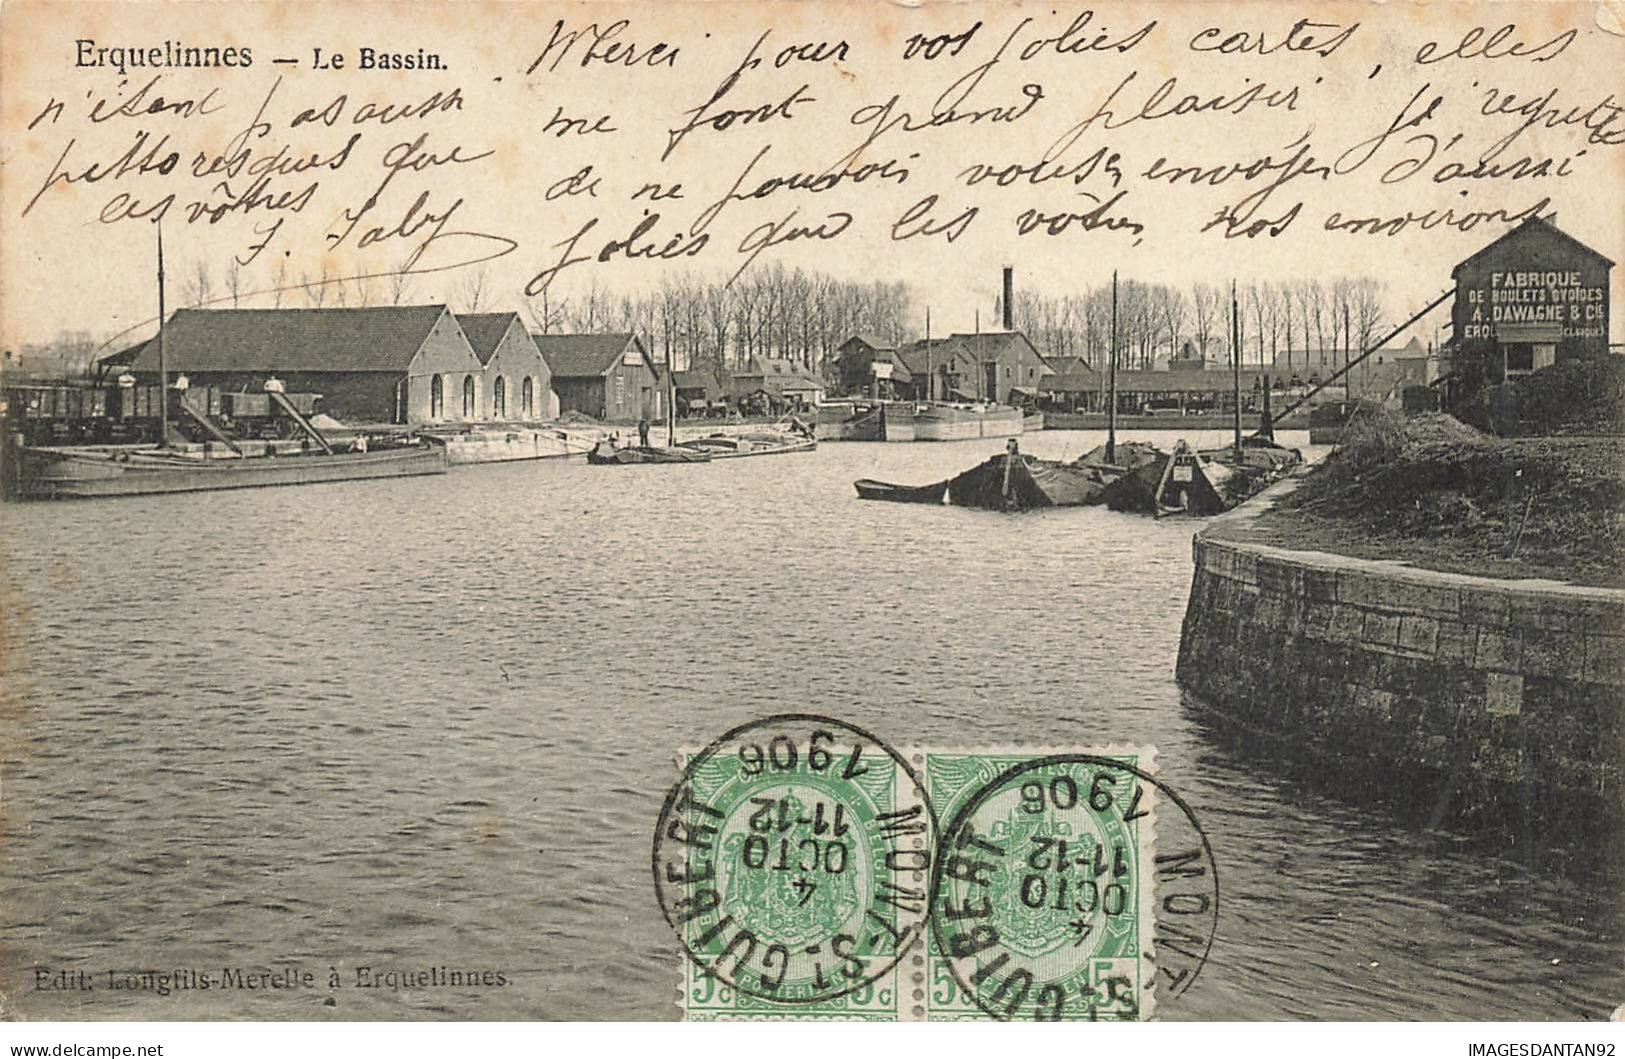 Erquelinnes — Le Bassin.
Merci pour vos jolies cartes, elles
me font grand plaisir, je regrette
de ne pouvoir vous envoyer d'aussi
jolies que les vôtres, nos environs
n'étant pas aussi
pittoresques que
les vôtres
FABRIQUE
DE BOULETS OVOÏDES
A. DAWAGNE & Cie
1906
11-12
OCTO
4
MONT-ST-GUIBERT
1906
11-12
OCTO
4
MONT-ST-GUIBERT
5c 5c
5c 5
Edit: Longfils-Merelle à Erquelinnes.
delcampe.net
IMAGESDANTAN92